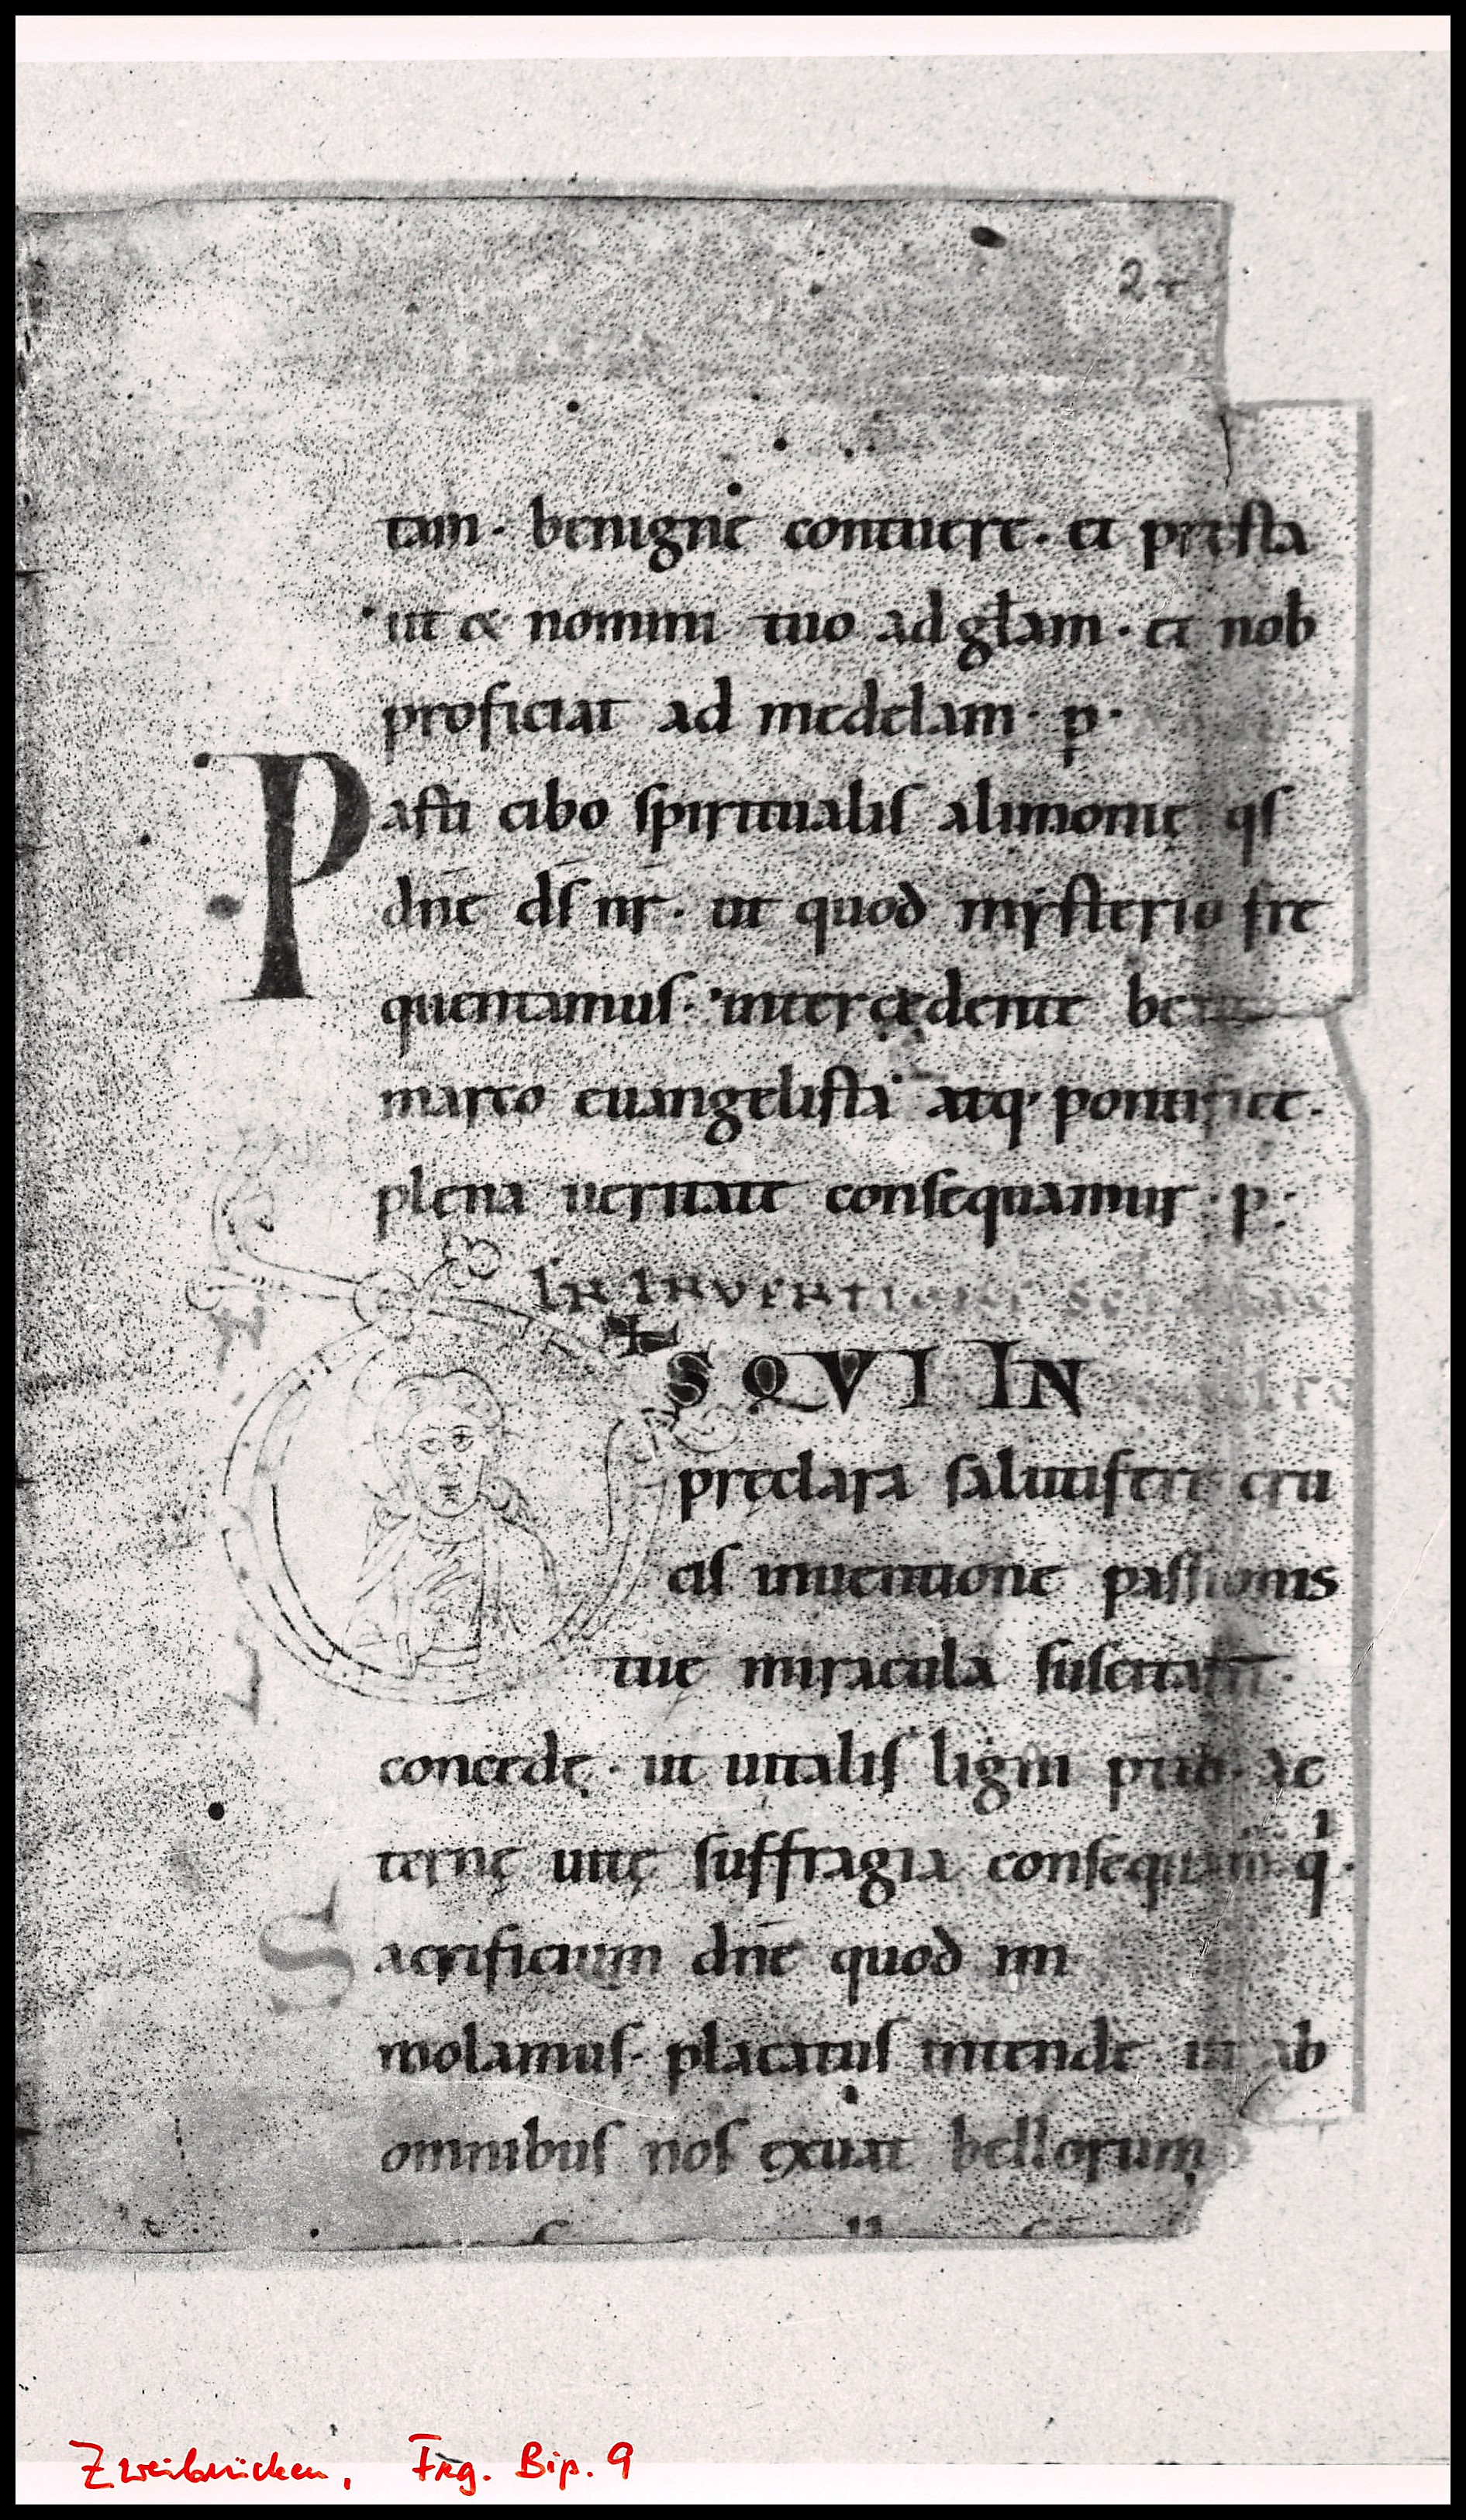 2r
tam · benigne contuere · et pręsta
ut & nomini tuo ad głam · et nob
proficiat ad medelam · p ·
Pasti cibo spiritualis alimonie qs
dnē ds nr̄ · ut quod mysterio fre
quentamus · intercedente be
marco euangelista atq; pontifice ·
plena ueritate consequamur · p ·
IN INVENTIONE SCE
DS QVI IN
pręclara salutifere cru
cis inuentione passionis
tuę miracula suscitasti ·
concede · ut uitalis ligni ae
ternę uitę suffragia consequam̄ q ·
Sacrificium dnē quod im
molamus · placatus intende ut ab
omnibus nos exuat bellorum
Zweibrücken, Frg. Bip. 9